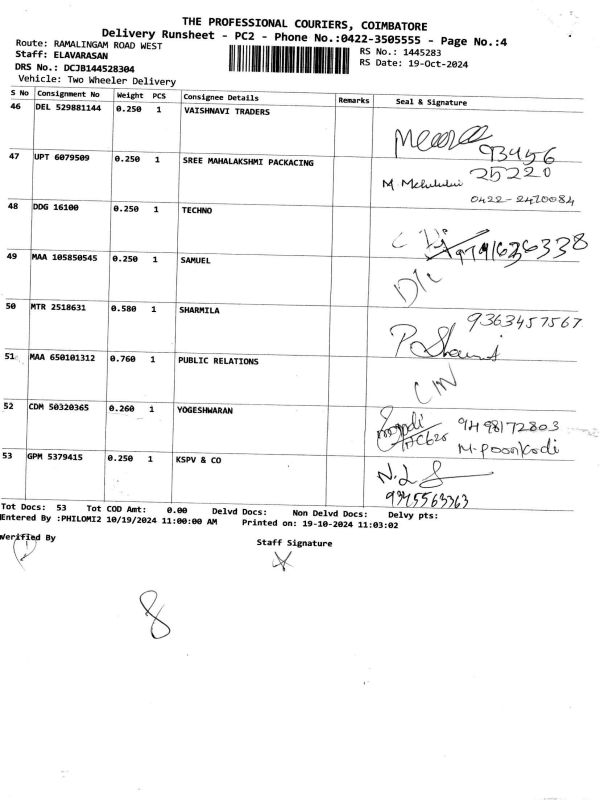 THE PROFESSIONAL COURIERS, COIMBATORE
Delivery Runsheet - PC2 - Phone No.:0422-3505555 - Page No.:4
Route: RAMALINGAM ROAD WEST
Staff: ELAVARASAN
DRS No.: DCJB144528304
Vehicle: Two Wheeler Delivery
RS No.: 1445283
RS Date: 19-Oct-2024
S No Consignment No Weight PCS Consignee Details Remarks Seal & Signature
46 DEL 529881144 0.250 1 VAISHNAVI TRADERS
93456
47 UPT 6079509 0.250 1 SREE MAHALAKSHMI PACKACING 25220
M
0422-2470084
48 DDG 16100 0.250 1 TECHNO
9791636338
49 MAA 105850545 0.250 1 SAMUEL
D/L
50 MTR 2518631 0.580 1 SHARMILA 9363457567
P.
51 MAA 650101312 0.760 1 PUBLIC RELATIONS
52 CDM 50320365 0.260 1 YOGESHWARAN
9498172803
HC620 M-Poonkodi
53 GPM 5379415 0.250 1 KSPV & CO N.L
9345563363
Tot Docs: 53 Tot COD Amt: 0.00 Delvd Docs: Non Delvd Docs: Delvy pts:
Entered By :PHILOMI2 10/19/2024 11:00:00 AM Printed on: 19-10-2024 11:03:02
Verified By Staff Signature
8